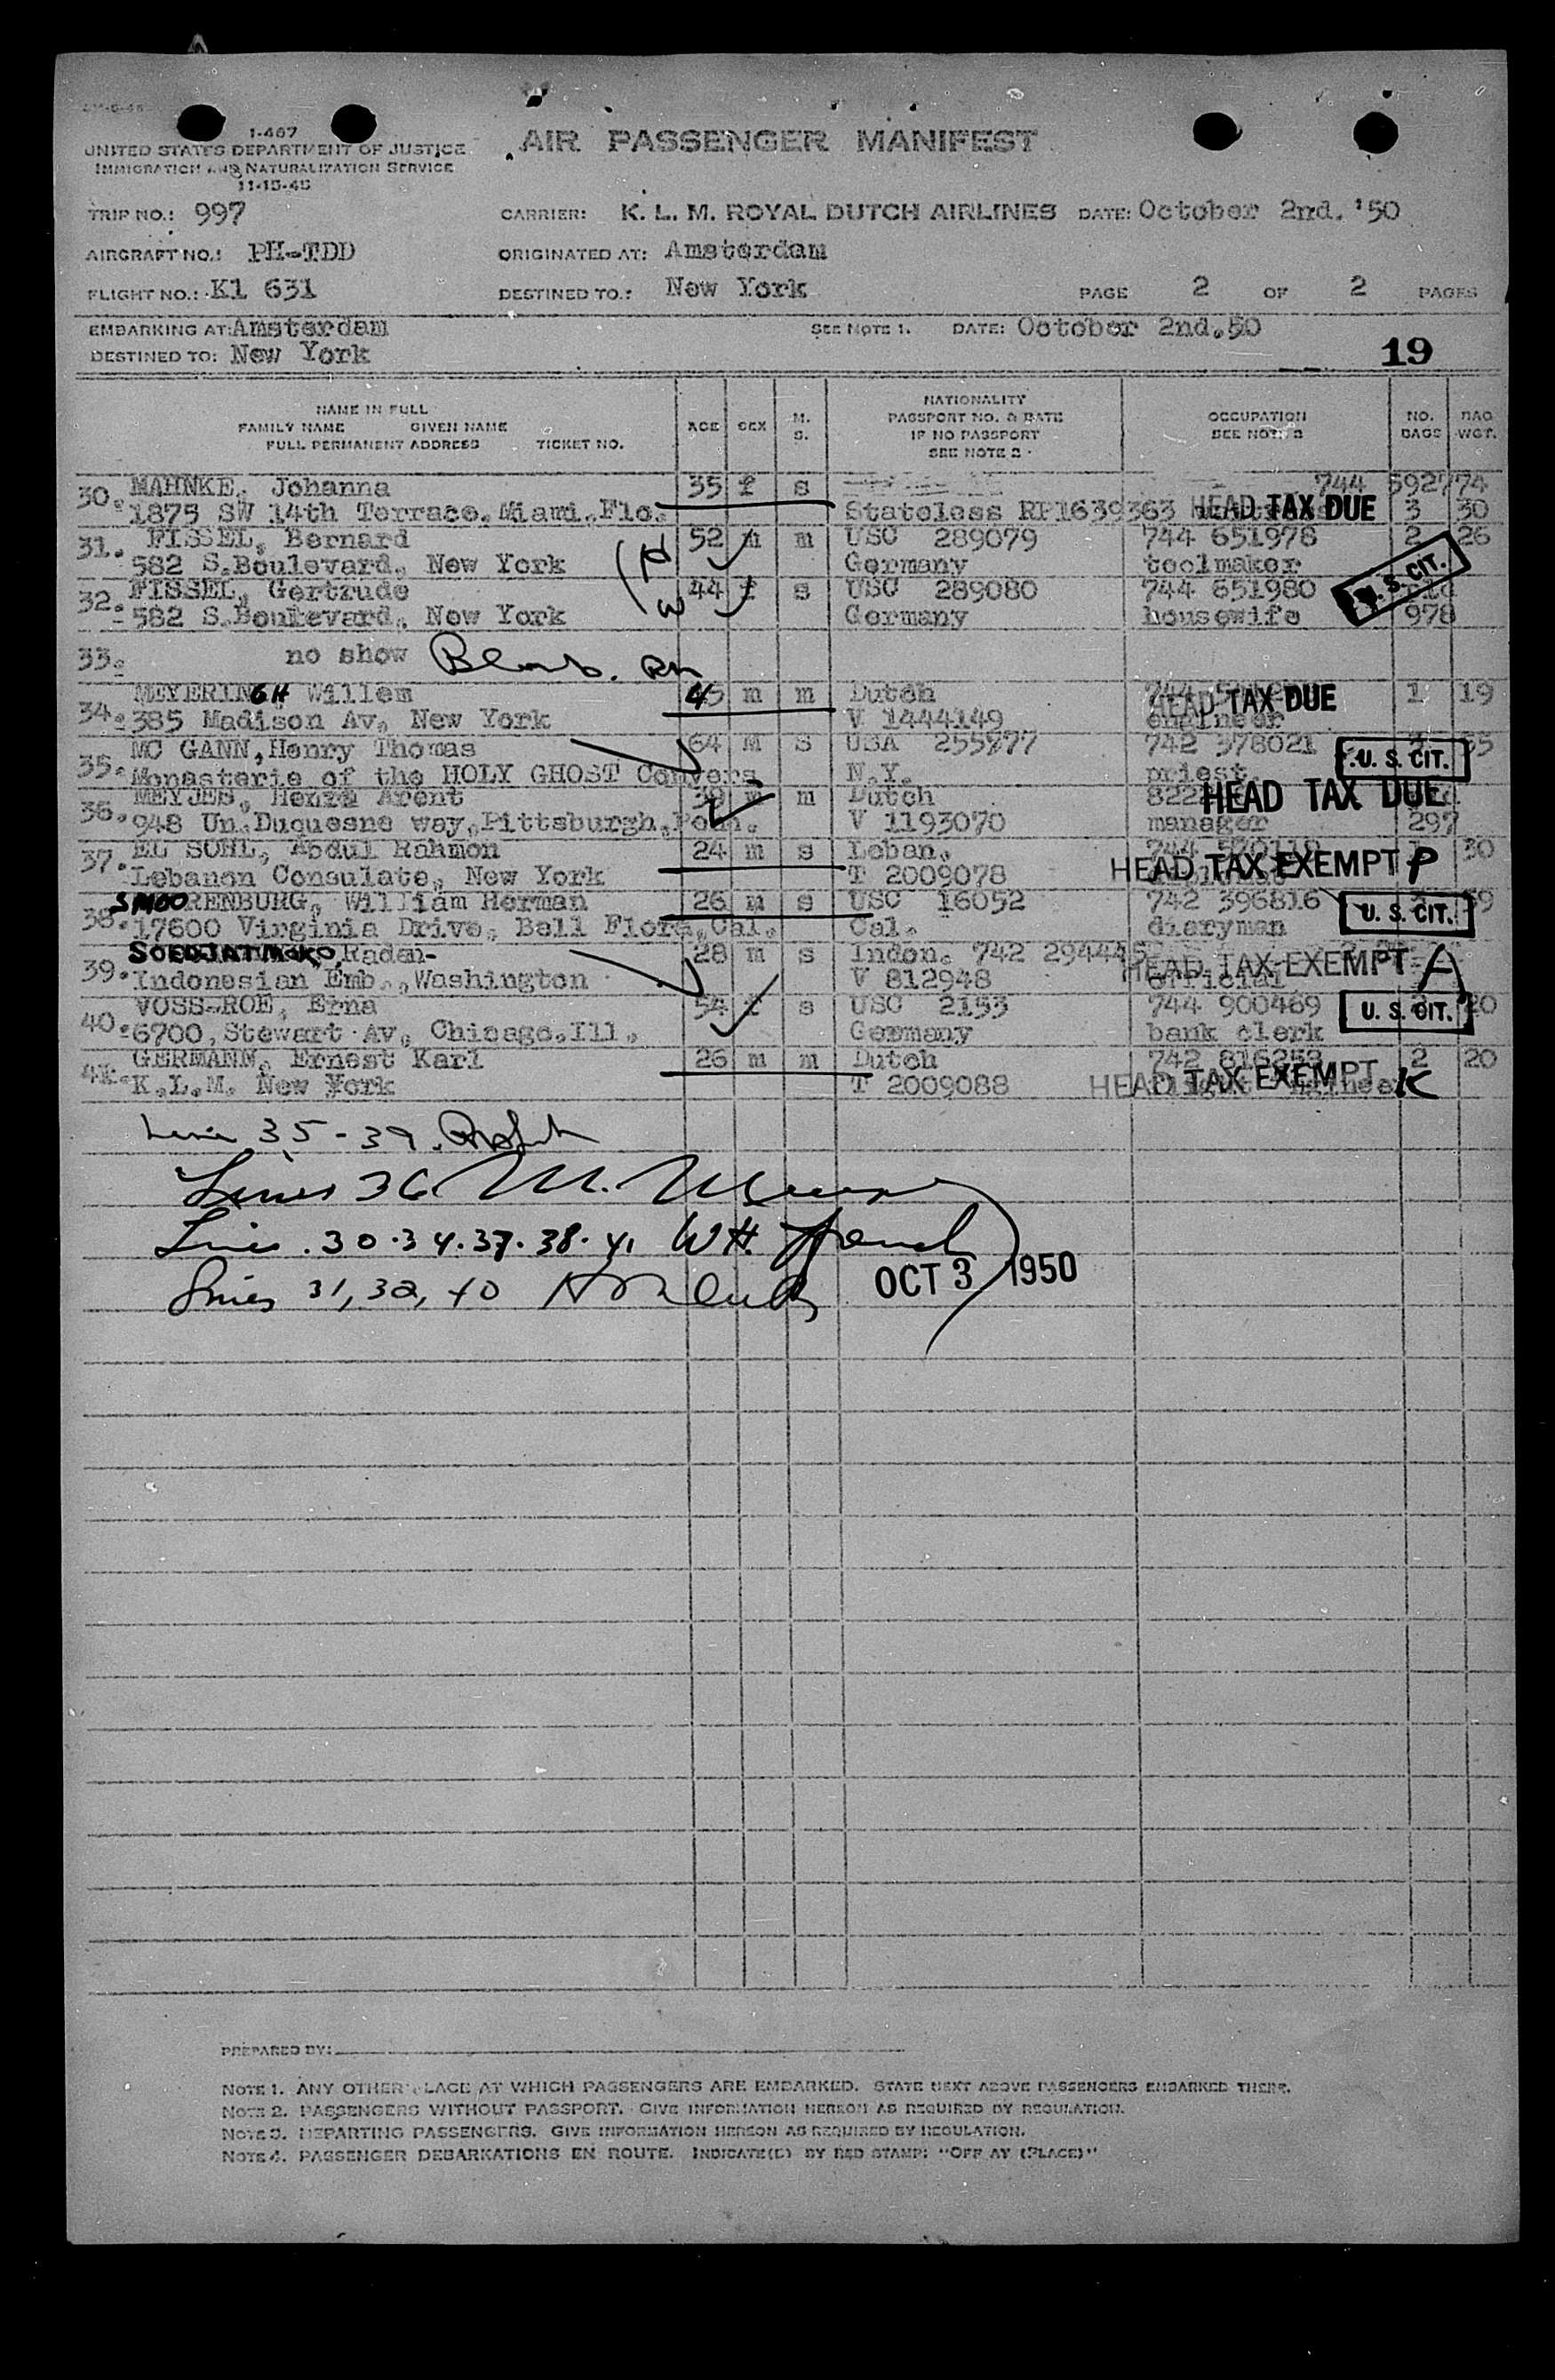 I-467
UNITED STATES DEPARTMENT OF JUSTICE
IMMIGRATION AND NATURALIZATION SERVICE
11-15-45
AIR PASSENGER MANIFEST
TRIP NO.: 997 CARRIER: K. L. M. ROYAL DUTCH AIRLINES DATE: October 2nd. '50
AIRCRAFT NO.: PH-TDD ORIGINATED AT: Amsterdam
FLIGHT NO.: Kl 631 DESTINED TO.: New York PAGE 2 OF 2 PAGES
EMBARKING AT: Amsterdam SEE NOTE 1. DATE: October 2nd.50
DESTINED TO: New York 19
NAME IN FULL
FAMILY NAME GIVEN NAME
FULL PERMANENT ADDRESS TICKET NO.
AGE SEX M. S.
NATIONALITY
PASSPORT NO. & DATE
IF NO PASSPORT
SEE NOTE 2
OCCUPATION
SEE NOTE 3
NO. BAGS
BAG WGT.
30. MAHNKE, Johanna 35 f s 744 592774
1875 SW 14th Terrace, Miami, Flo. Stateless RP1639363 HEAD TAX DUE 3 30
31. FISSEL, Bernard 52 m m USC 289079 744 651978 2 26
582 S.Boulevard, New York Germany toolmaker
32. FISSEL, Gertrude 44 f s USC 289080 744 651980 U. S. CIT.
582 S.Boulevard, New York Germany housewife 978
33. no show
34. MEYERINGH Willem 45 m m Dutch HEAD TAX DUE 1 19
385 Madison Av, New York V 1444149 engineer
35. MC GANN, Henry Thomas 64 m s USA 255977 742 378021 U. S. CIT.
Monasterie of the HOLY GHOST Convers N.Y. priest
36. MEYJES, Henri Arent 39 m m Dutch HEAD TAX DUE
948 Un.Duquesne way, Pittsburgh, Penn. V 1193070 manager 297
37. EL SOHL, Abdul Rahmon 24 m s Leban. 30
Lebanon Consulate, New York T 2009078 HEAD TAX EXEMPT P
38. SMOORENBURG, William Herman 26 m s USC 16052 742 396816 U. S. CIT.
17600 Virginia Drive, Bell Flora, Cal. Cal. diaryman
39. SOEDJATMOKO, Raden- 28 m s Indon. 742 294445
Indonesian Emb., Washington V 812948 official HEAD TAX EXEMPT A
40. VOSS-ROE, Erna 54 f s USC 2153 744 900469 U. S. CIT. 20
6700, Stewart Av, Chicago.Ill. Germany bank clerk
41. GERMANN, Ernest Karl 26 m m Dutch 742 816259 2 20
K.L.M. New York T 2009088 HEAD TAX EXEMPT K
35-39.
Lines 36 M.
Lines 30.34.37.38.41 WH.
Lines 31, 32, 40 OCT 3 1950
PREPARED BY:
NOTE 1. ANY OTHER PLACE AT WHICH PASSENGERS ARE EMBARKED. STATE NEXT ABOVE PASSENGERS EMBARKED THERE.
NOTE 2. PASSENGERS WITHOUT PASSPORT. GIVE INFORMATION HEREON AS REQUIRED BY REGULATION.
NOTE 3. DEPARTING PASSENGERS. GIVE INFORMATION HEREON AS REQUIRED BY REGULATION.
NOTE 4. PASSENGER DEBARKATIONS EN ROUTE. INDICATE(D) BY RED STAMP: "OFF AT (PLACE)"